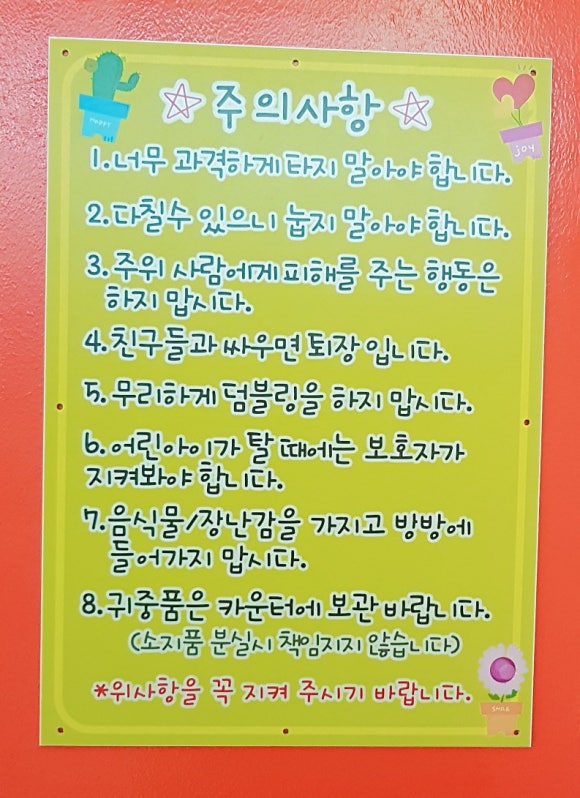 HAPPY
JOY
☆주의사항☆
1.너무 과격하게 타지 말아야 합니다.
2.다칠수 있으니 눕지 말아야 합니다.
3. 주위 사람에게 피해를 주는 행동은
하지 맙시다.
4.친구들과 싸우면 퇴장 입니다.
5.무리하게 덤블링을 하지 맙시다.
6.어린아이가 탈 때에는 보호자가
지켜봐야 합니다.
7.음식물/장난감을 가지고 방방에
들어가지 맙시다.
8.귀중품은 카운터에 보관 바랍니다.
(소지품 분실시 책임지지 않습니다)
*위사항을 꼭 지켜 주시기 바랍니다.
SMILE